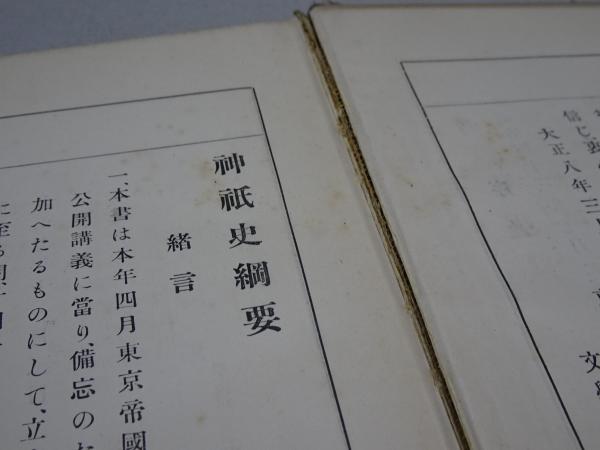 信じ、
大正八年三月
文學
神祇史綱要
緒言
一、本書は本年四月東京帝國
公開講義に當り、備忘の
加へたるものにして、立
に至る